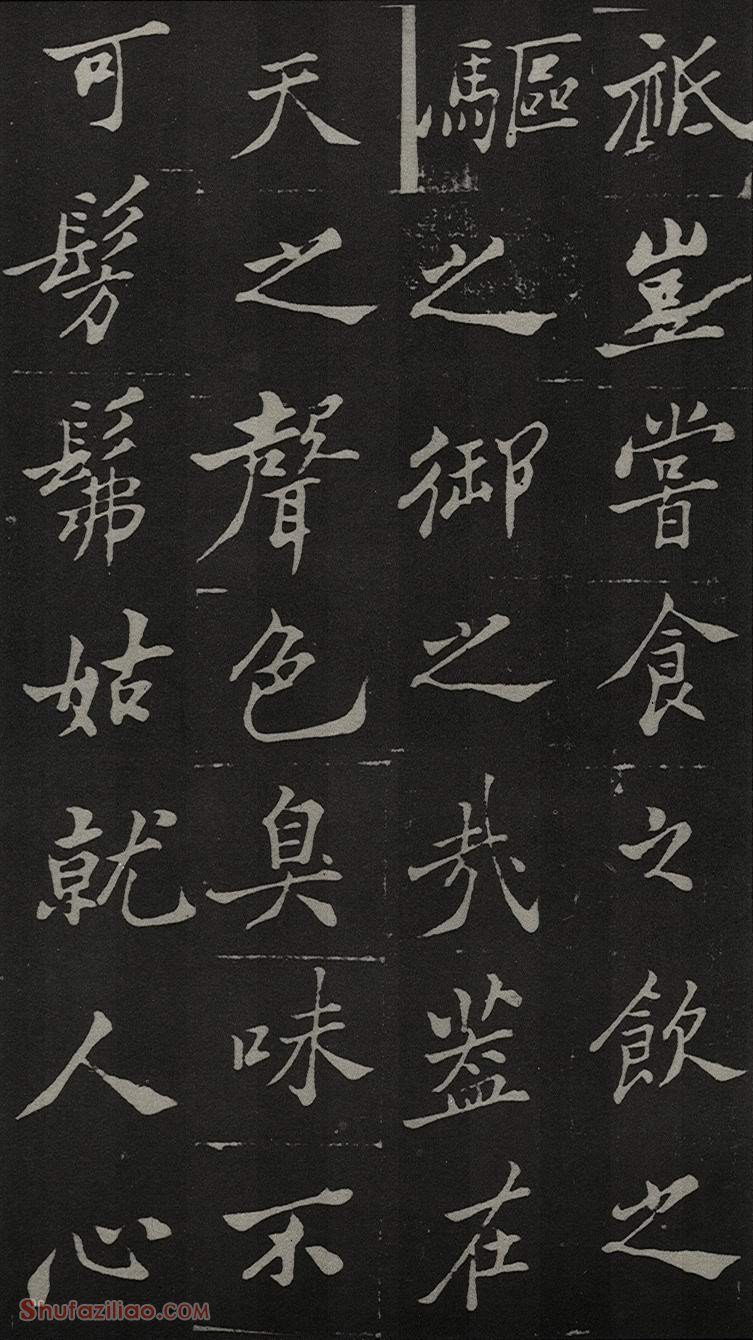 祗豈嘗食之飲之
驅之御之哉蓋在
天之聲色臭味不
可髣髴姑就人心
Shufaziliao.com